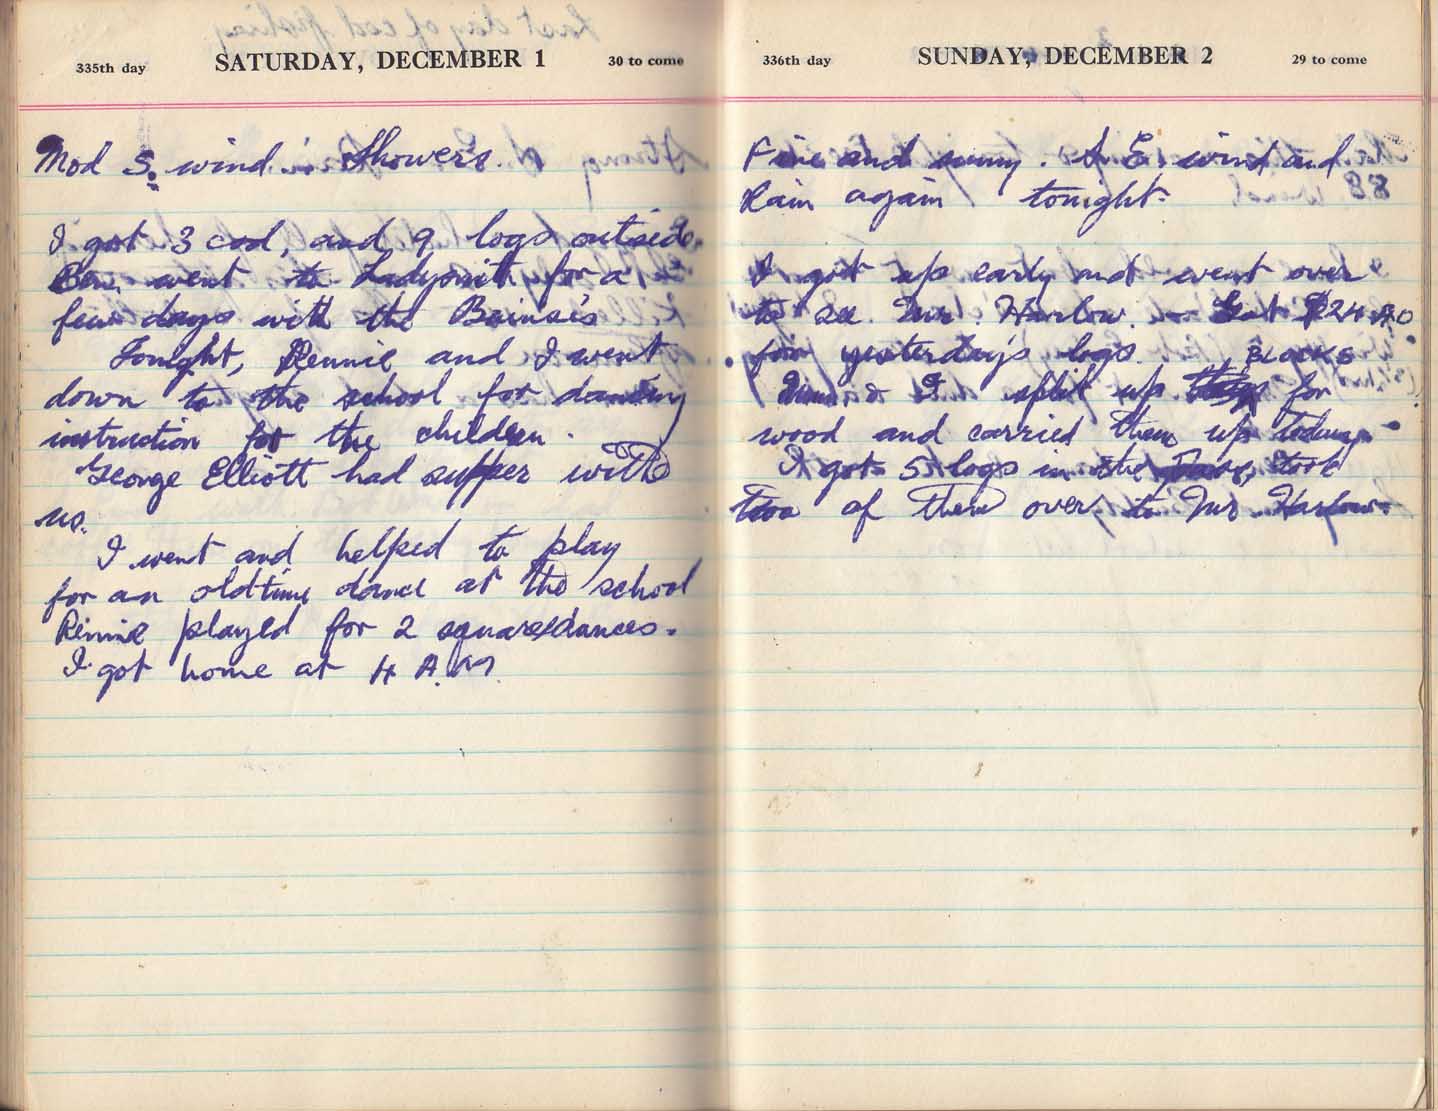 335th day SATURDAY, DECEMBER 1 30 to come
Mod S. wind. Showers.
I got 3 cod, and 9 logs outside.
went to Ladysmith for a
few days with the Bains's
Tonight, Rennie and I went
down to the school for dancing
instruction for the children.
George Elliott had supper with
us.
I went and helped to play
for an oldtime dance at the school
Rennie played for 2 squaredances.
I got home at 4 A.M.
336th day SUNDAY, DECEMBER 2 29 to come
Fine and sunny. S.E. wind and
Rain again tonight.
I got up early and went over
to see Mr. Harlow. Got $24
for yesterday's logs.
BLOCKS
I split up for
wood and carried them up today.
I got 5 logs in the took
two of them over to Mr. Harlow.